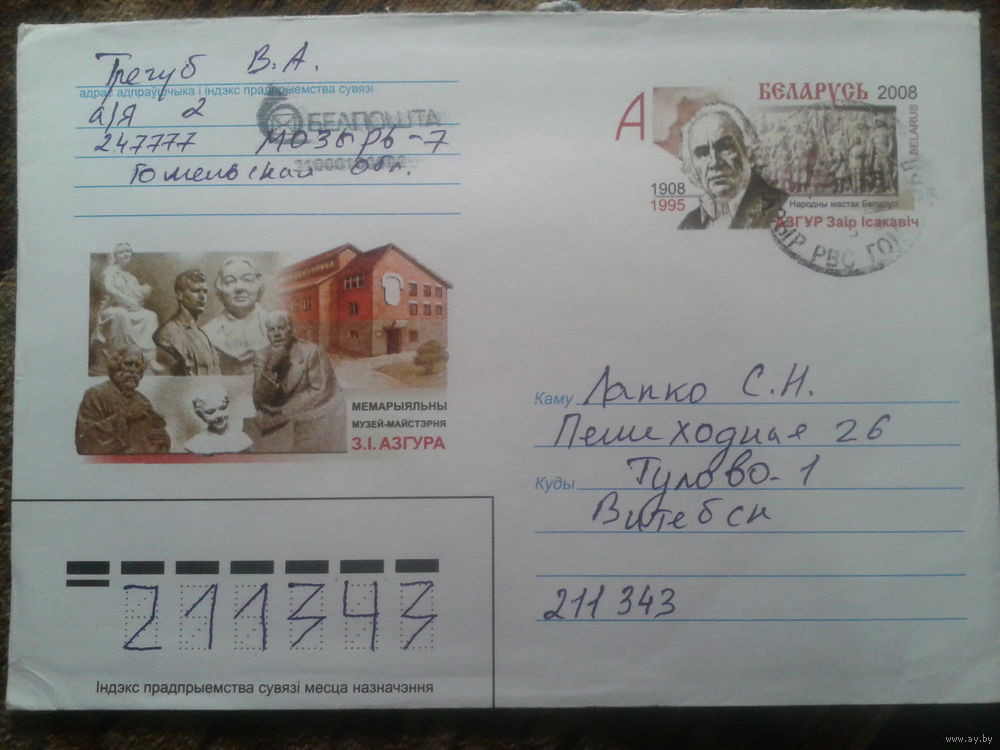 Трегуб В.А.
адрас адпраўшчыка і індэкс прадпрыемства сувязі
а/я 2
БЕЛПОШТА
247777 Мозырь-7
Гомельская обл.
А
БЕЛАРУСЬ 2008
BELARUS
1908
1995
Народны мастак Беларусі
АЗГУР Заір Ісакавіч
РВС ГОМ
МЕМАРЫЯЛЬНЫ
МУЗЕЙ-МАЙСТЭРНЯ
З.І. АЗГУРА
Каму Лапко С.Н.
Пешеходная 26
Куды Тулово-1
Витебск
211343
211343
Індэкс прадпрыемства сувязі месца назначэння
www.ay.by